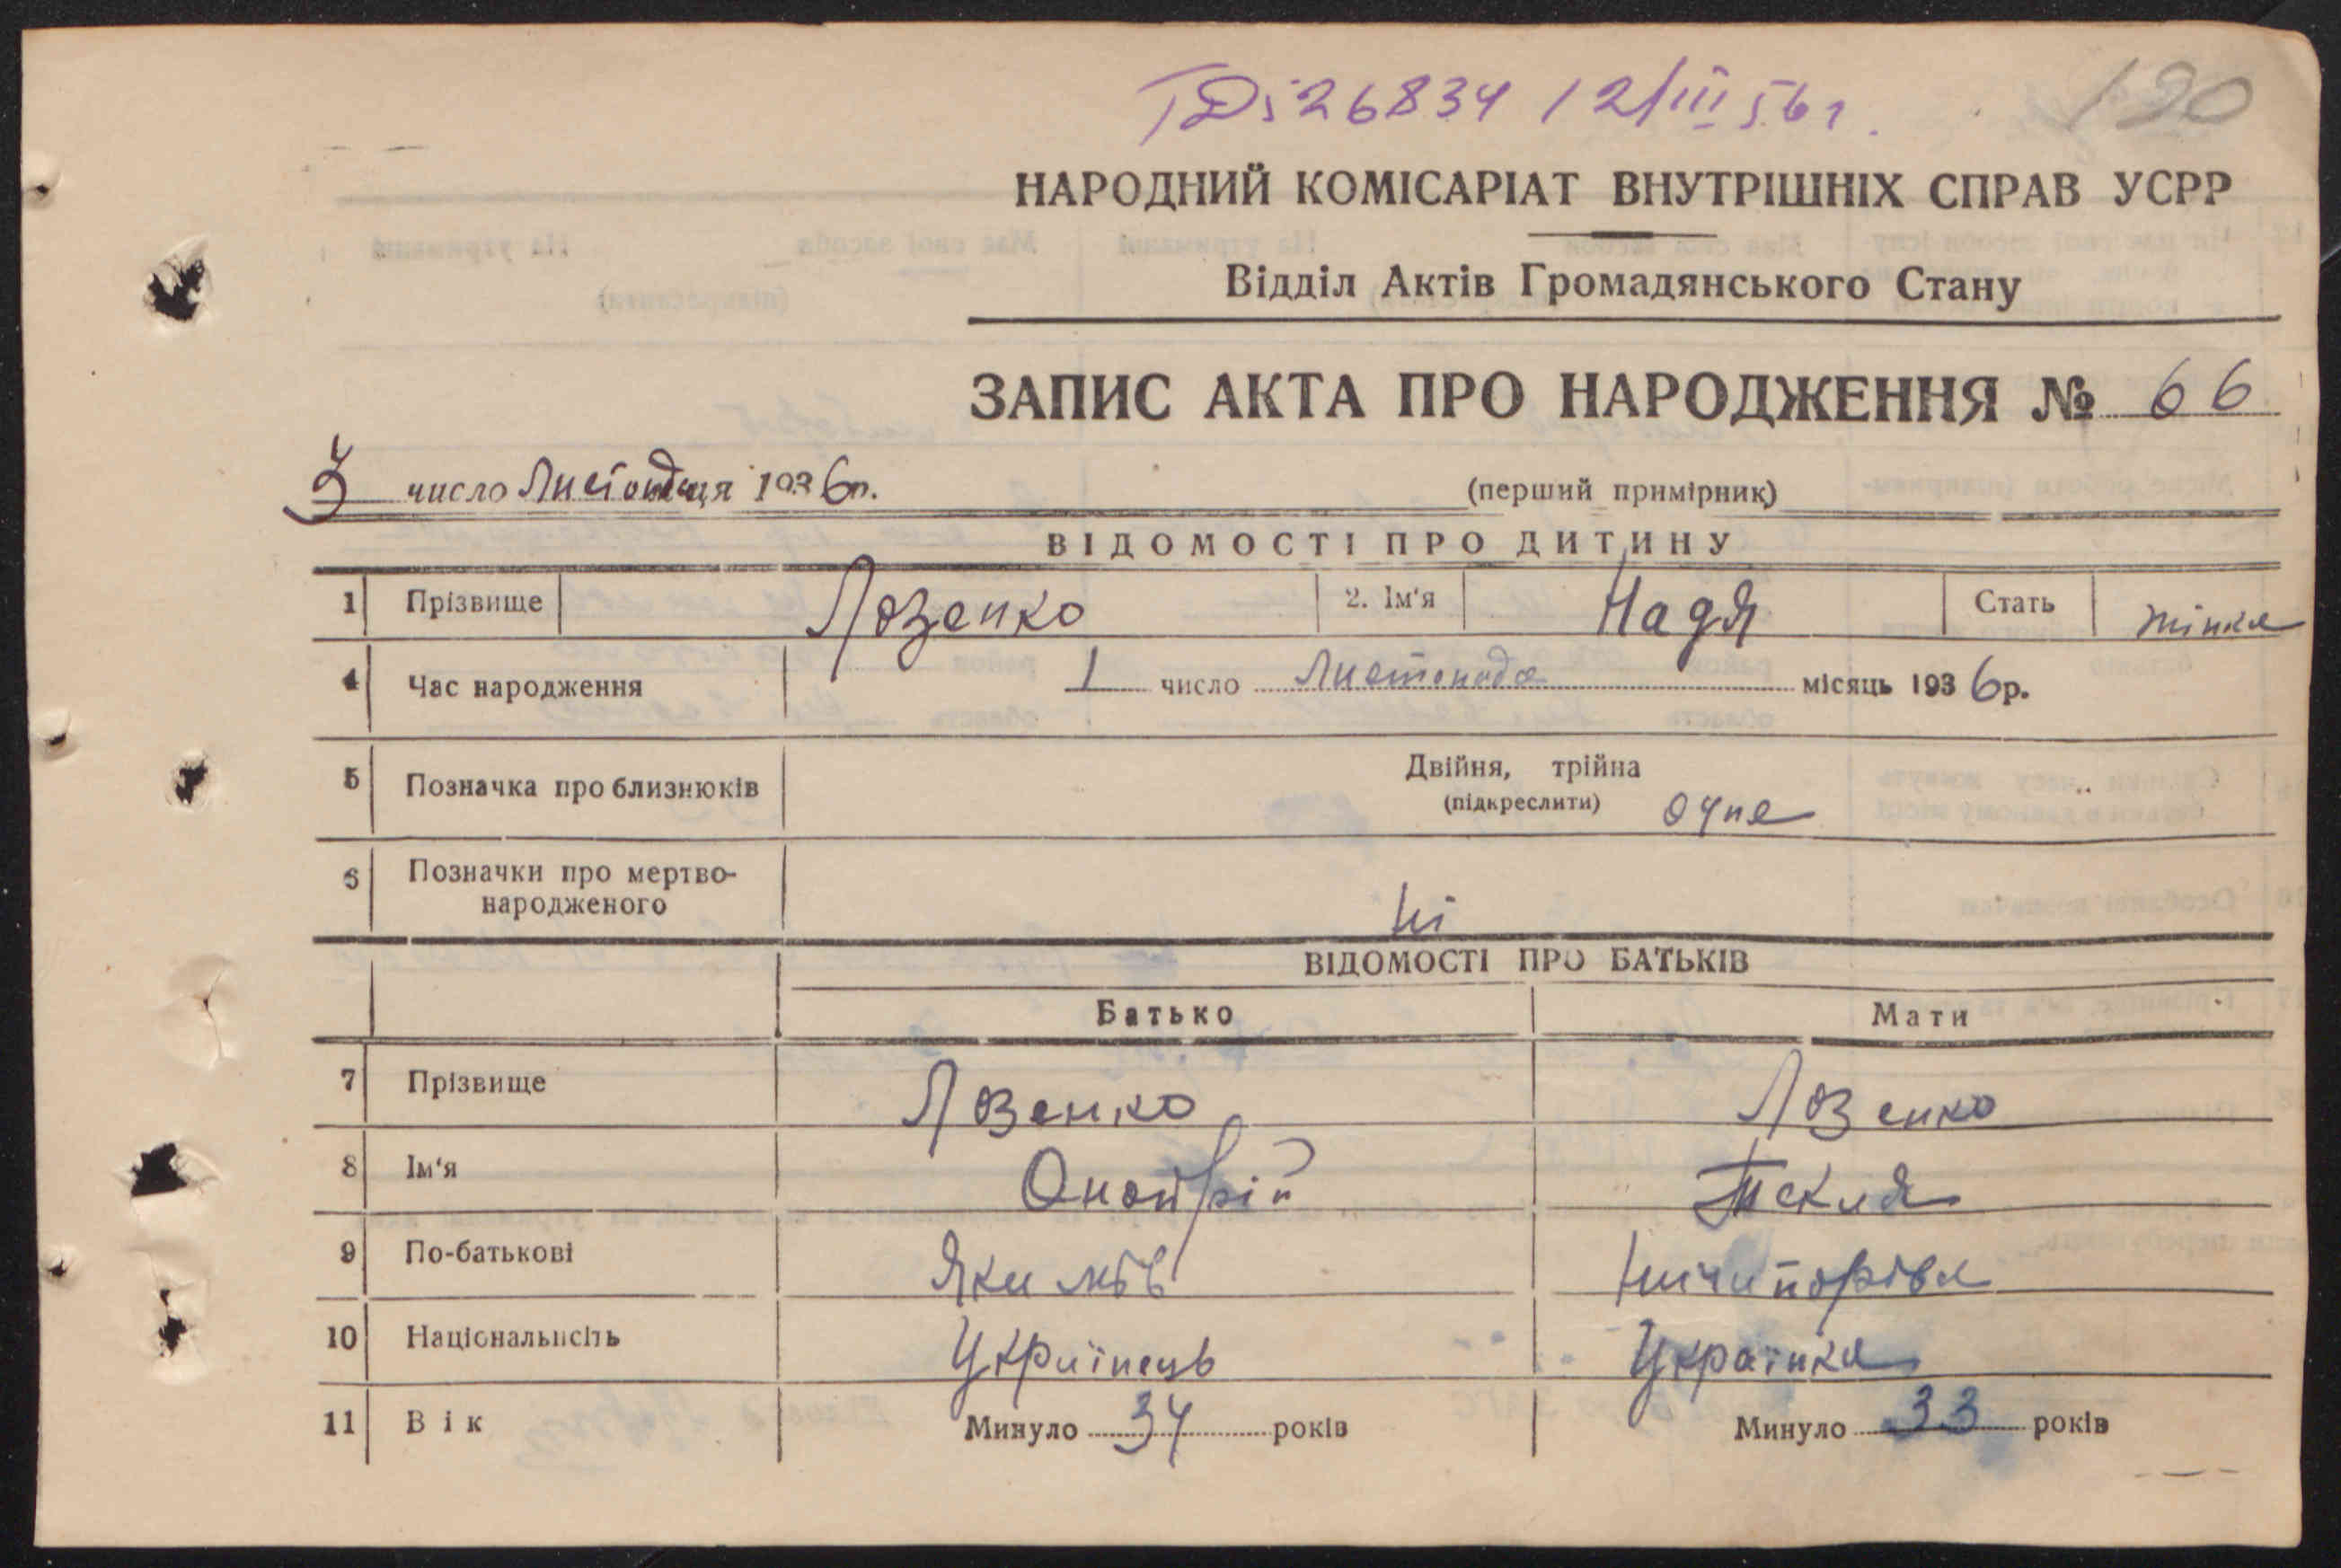 ТД 526834 12/III 56 г.
190
НАРОДНИЙ КОМІСАРІАТ ВНУТРІШНІХ СПРАВ УСРР
Відділ Актів Громадянського Стану
ЗАПИС АКТА ПРО НАРОДЖЕННЯ № 66
3 число Листопаця 1936р. (перший примірник)
ВІДОМОСТІ ПРО ДИТИНУ
1 Прізвище Лозенко 2. Ім'я Надя Стать жінка
4 Час народження 1 число Листопада місяць 1936р.
5 Позначка про близнюків Двійня, трійна
(підкреслити) одне
6 Позначки про мертво-
народженого Ні
ВІДОМОСТІ ПРО БАТЬКІВ
Батько Мати
7 Прізвище Лозенко Лозенко
8 Ім'я Онопрій Текля
9 По-батькові Якимів Ничипорівна
10 Національнсіть Українець Українка
11 Вік Минуло 34 років Минуло 33 років